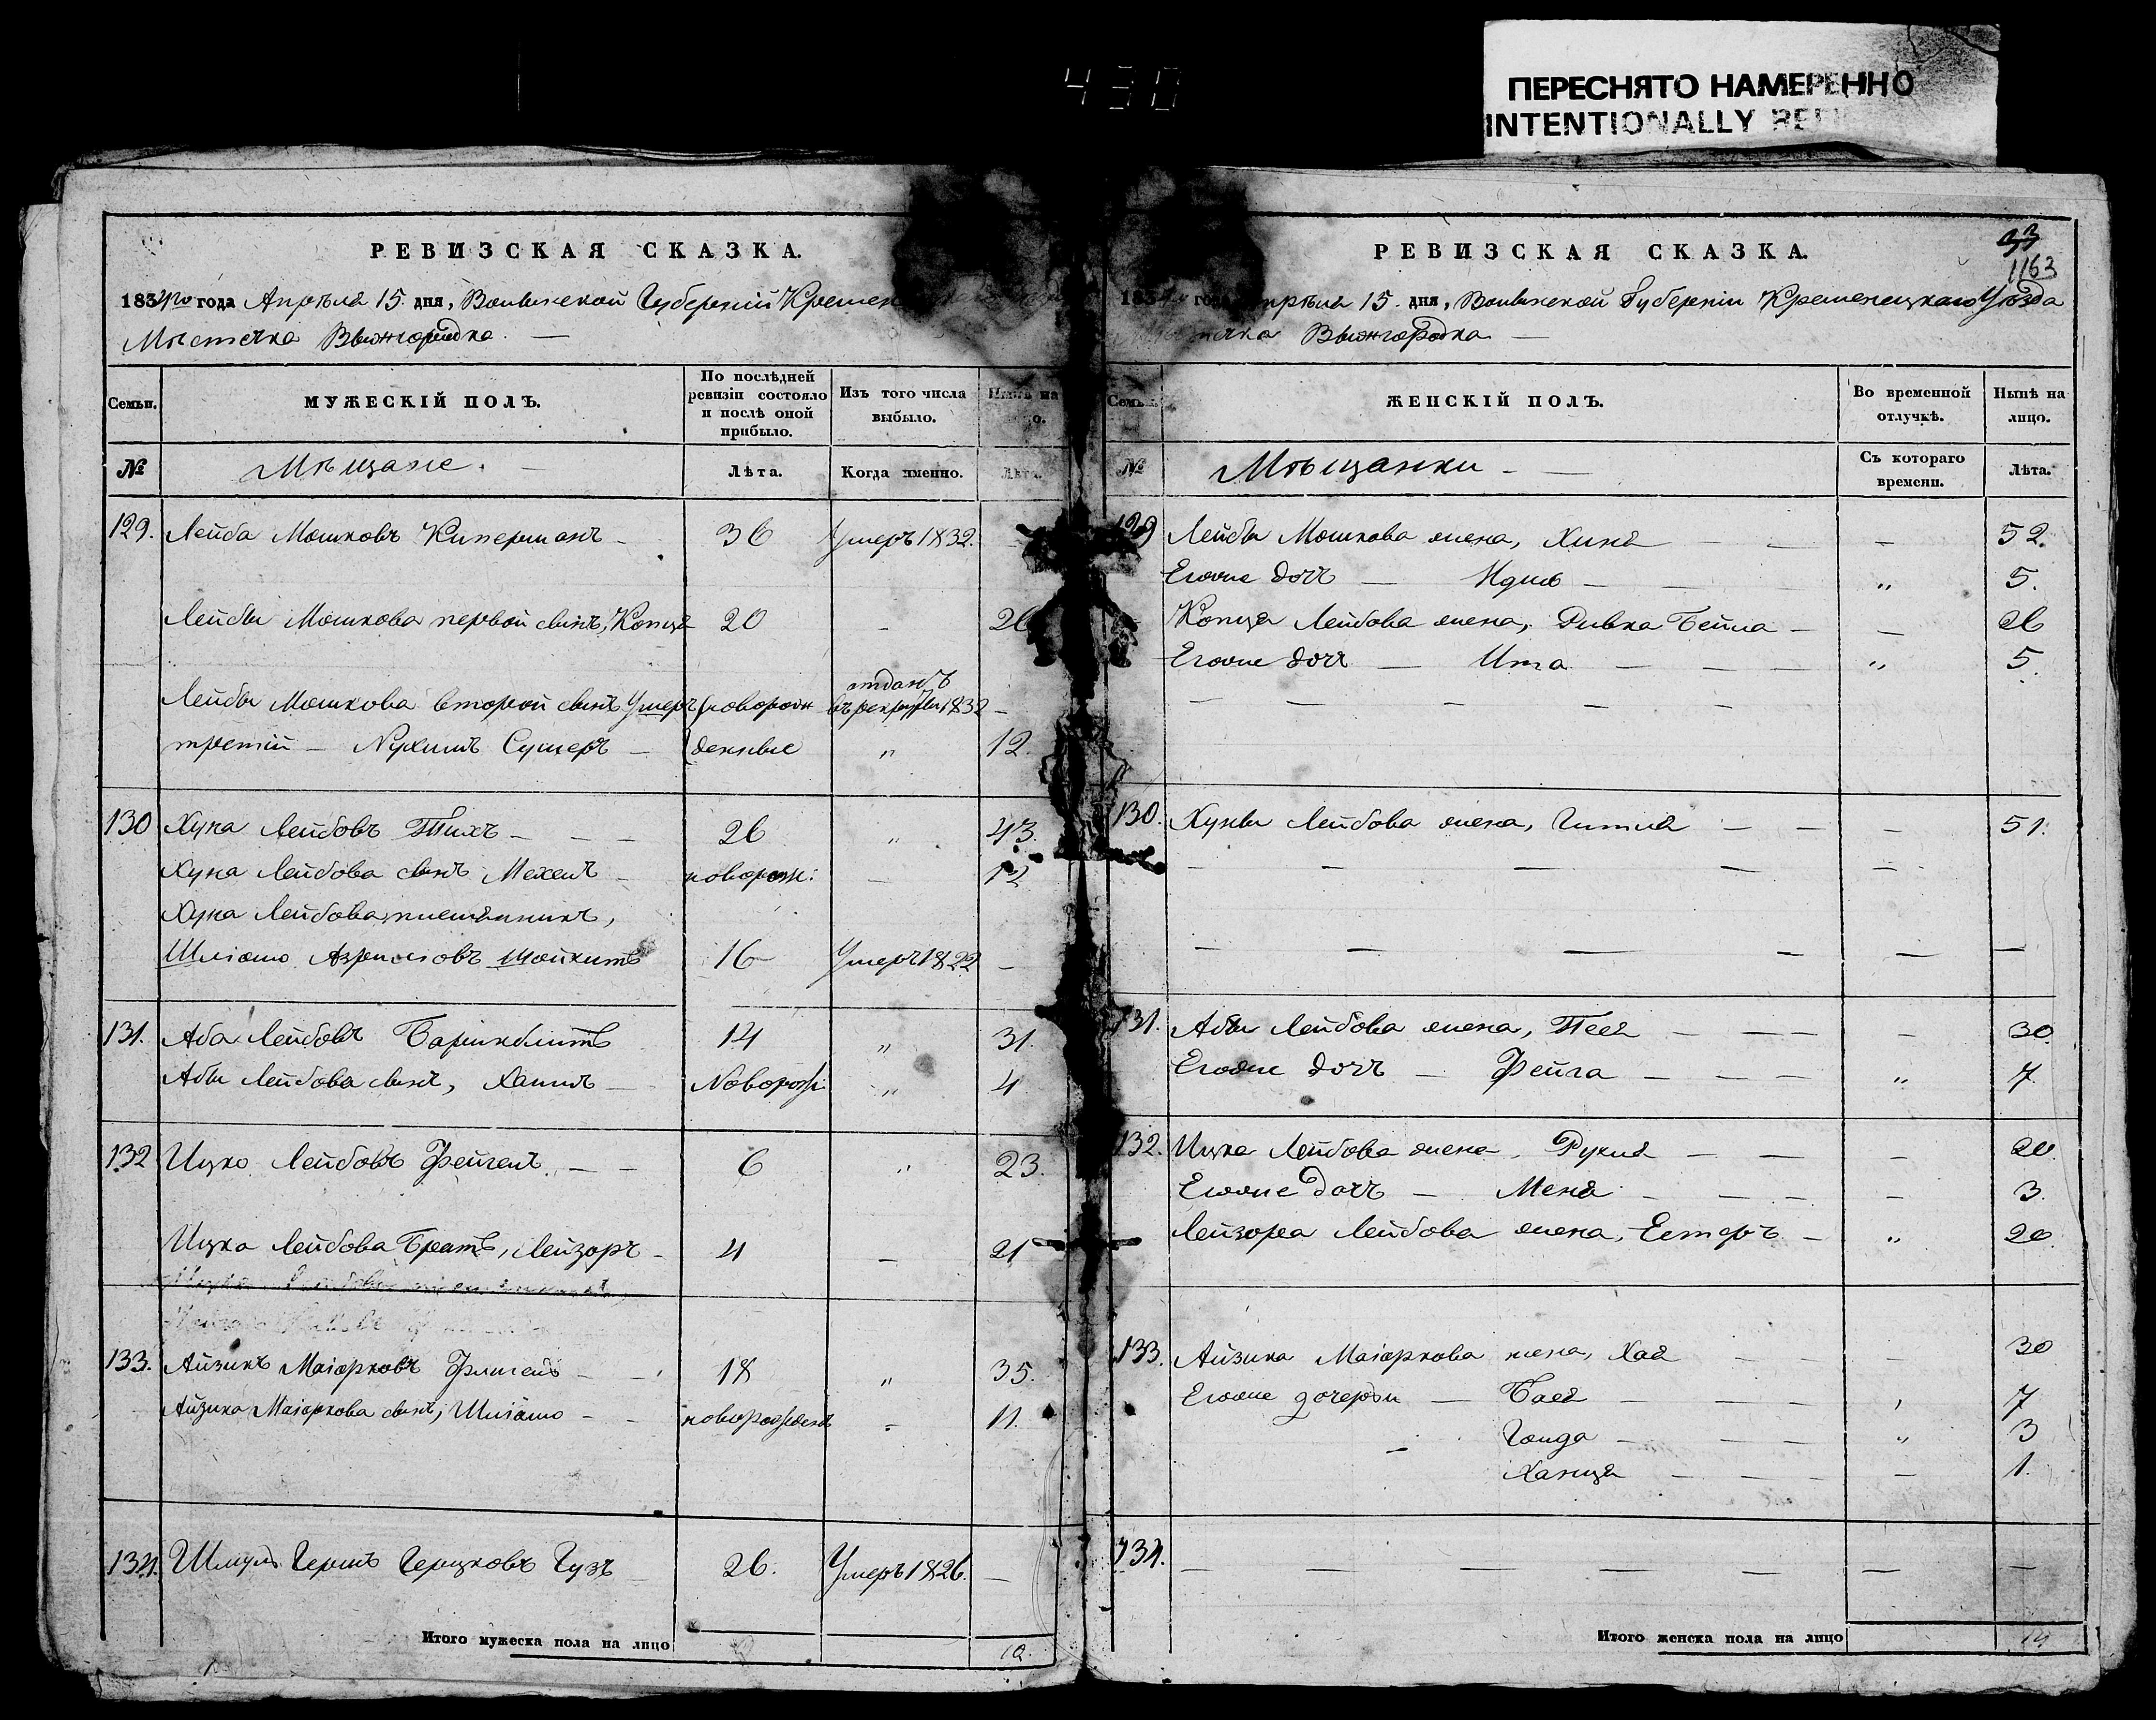 430
ПЕРЕСНЯТО НАМЕРЕННО
INTENTIONALLY
РЕВИЗСКАЯ СКАЗКА.
1834го года Апрѣля 15. дня, Волынской Губерніи
Мѣстечка Вышгородка. —
Семьи.
МУЖЕСКІЙ ПОЛЪ.
По послѣдней ревизіи состояло и послѣ оной прибыло.
Изъ того числа выбыло.
№
Мѣщане. —
Лѣта.
Когда именно.
Лѣта.
129. Лейба Мошковъ Киперманъ — 36 Умеръ 1832. —
Лейбы Мошкова первой сынъ, Копця 20 —
Лейбы Мошкова второй сынъ новорож отданъ въ рекруты 1832 —
третій — Нухимъ — денные „ 12.
130 Хуна Лейбовъ — — — 26 „ 43.
Хуна Лейбова сынъ Мехелъ — новорож: — 12
Хуна Лейбова племянникъ,
Шліомо 16 Умеръ 1822 —
131. Аба Лейбовъ 14 „ 31.
Абы Лейбова сынъ, Хаимъ — Новорож: „ 4
132 Ицко Лейбовъ Фейгелъ — — 6 „ 23.
Ицка Лейбова Братъ, Лейзоръ — 4 — 21
133. Айзикъ Маіорковъ — — 18 „ 35.
Айзика Маіоркова сынъ, Шліомо — — новорожденъ „ 11.
134. Шмуль Гершъ Герцковъ Гузъ 26. Умеръ 1826. —
Итого мужеска пола на лицо 10.
33
1163
РЕВИЗСКАЯ СКАЗКА.
Апрѣля 15. дня, Волынской Губерніи Кременецкаго Уѣзда
Вышгородка —
ЖЕНСКІЙ ПОЛЪ.
Во временной отлучкѣ.
Нынѣ на лицо.
№
Мѣщанки — —
Съ котораго времени.
Лѣта.
129 Лейбы Мошкова жена, Хина — — — 52.
Егоже дочь — — — — „ 5.
Копця Лейбова жена, Ривка Бейла — — 26
Егоже дочь — Ита — — — „ 5.
— — — — — — —
130. Хуны Лейбова жена, Гитля — — — 51.
— — — — —
— — — — — —
131. Абы Лейбова жена, — — — — 30
Егоже дочь — Фейга — — — „ 7
132. Ицка Лейбова жена, Рухля — — — 20
Егоже дочь — Меня — — — — 3
Лейзора Лейбова жена, Естеръ — „ 20
133. Айзика Маіоркова жена, Хая — — — 30
Егоже дочери — Бася — — — „ 7
— — — — „ 3
Ханця — — — — 1.
134. — — — — — — —
Итого женска пола на лицо 14